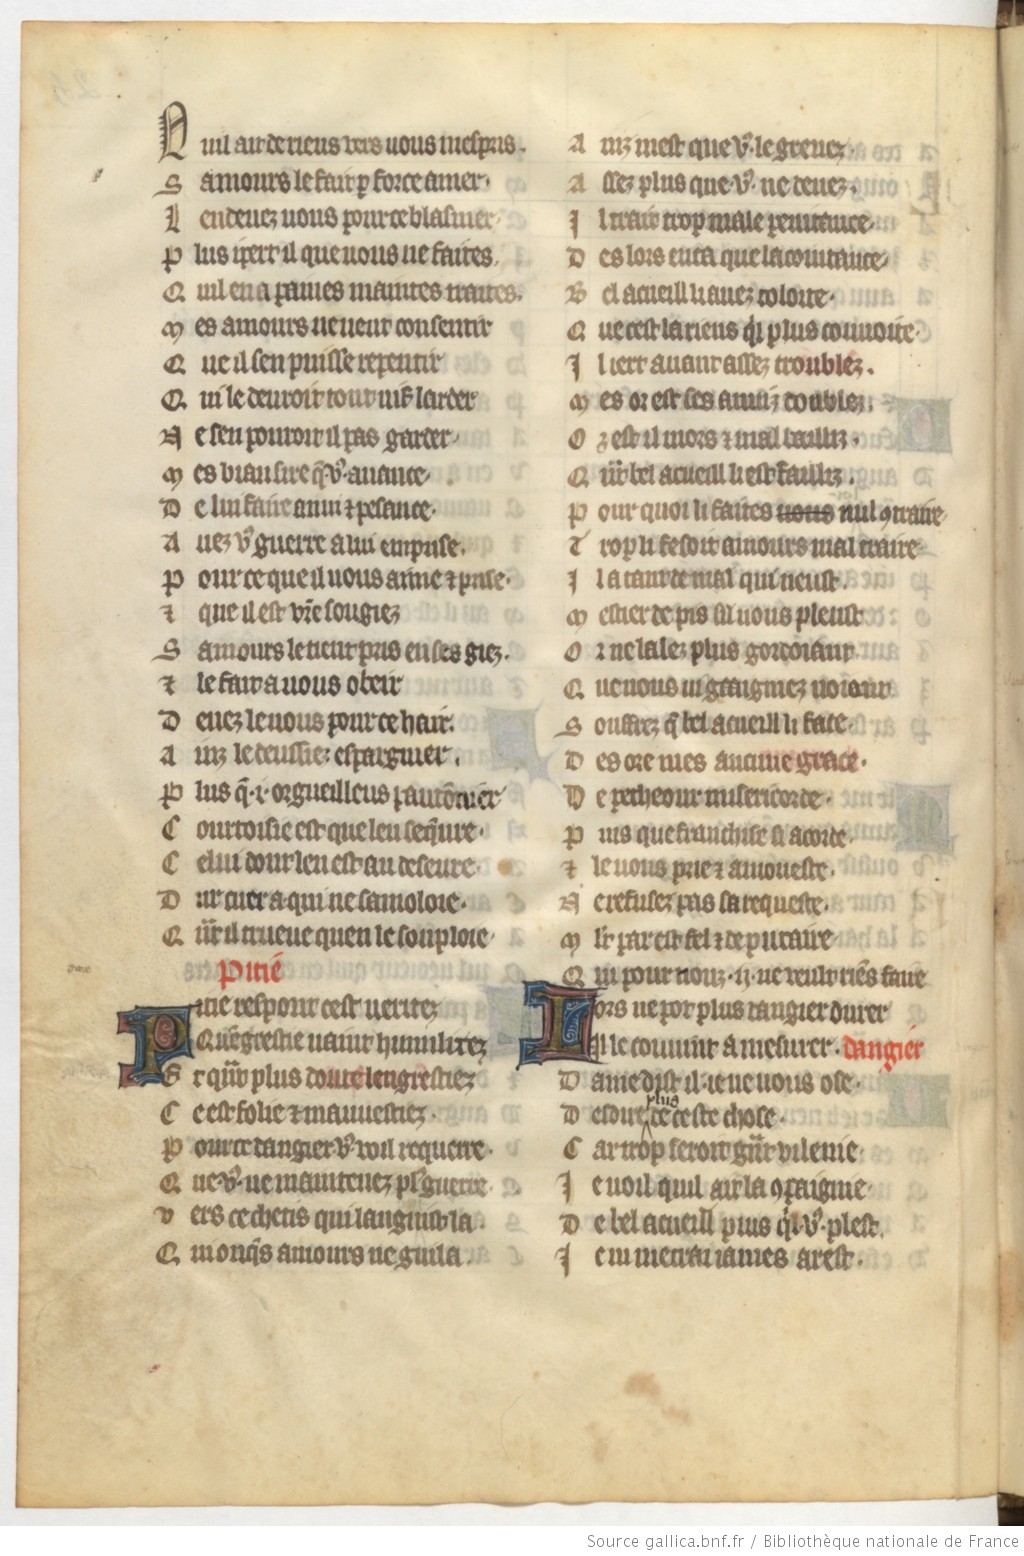 N uil ait de riens vers uous mespris.
S amours le fait p force amer.
L en deuez uous pour ce blasmer.
P lus i pert il que uous ne faites.
Q uil en a paines maintes traites.
M es amours ne ueut consentir
Q ue il sen puisse repentir
Q ui le deuroit tout uif larder
N e sen pouroit il pas garder.
M es biau sire q̃ vͦ auance.
D e lui faire anui ⁊ pesance.
A uez vͦ guerre a lui emprise.
P our ce que il uous aime ⁊ prise.
⁊ que il est vr̃e sougiez
S amours le tient pris en ses giez.
⁊ le fait a uous obeir
D euez le uous pour ce hair.
A inz le deussiez espargnier.
P lus q̃ .i. orgueilleus pautõnier
C ourtoisie est que len seq̃ure.
C elui dont len est au deseure.
D ur cuer a qui ne samoloie.
Q ñt il trueue quen le souploie.
Pitié
P itie respont cest ueritez
Q uẽgrestie uaint humilitez
E t qñt plus doute lengrestiez
C e est folie ⁊ mauuestiez.
P our ce dangier vͦ voil requerre.
Q ue vͦ ne maintenez pl᷒ guerre.
V ers ce chetis qui languist la.
Q ui onq̃s amours ne guila.
A inz mest que vͦ le greuez.
A ssez plus que vͦ ne deuez.
I l trait trop male penitance.
D es lors en ca que lacointance.
B el acueill li auez toloite.
Q ue cest la riens qͥ plus couuoite.
I l iert auant assez troublez.
M es or est ses anuiz doublez.
O r est il mors ⁊ mal bailliz.
Q ñt bel acueill li est failliz.
P our quoi li faites uous nul ꝯtraire
T rop li fesoit amours mal traire
I l a tant de mal qui neust.
M estier de pis sil uous pleust
O r ne lalez plus gordoiant.
Q ue uous ni gaaigniez noiant
S ouffrez q̃ bel acueill li face.
D es ore mes aucune grace.
D e pecheour misericorde.
P uis que franchise si acorde.
⁊ le uous prie ⁊ amoneste.
N e refusez pas sa requeste.
M lt par est fel ⁊ deputaire
Q ui pour nouz .ii. ne veult riẽs faire
L ors ne pot plus dangier durer
Il le couuint amesurer. dangier
D ame dist il ie ne uous ose.
D esdire plus de ceste chose.
C ar trop seroit gñt vilenie.
I e uoil quil ait la ꝯpaignie.
D e bel acueill puis qͥl vͦ plest.
I e ni metrai iames arest.
Source gallica.bnf.fr / Bibliothèque nationale de France